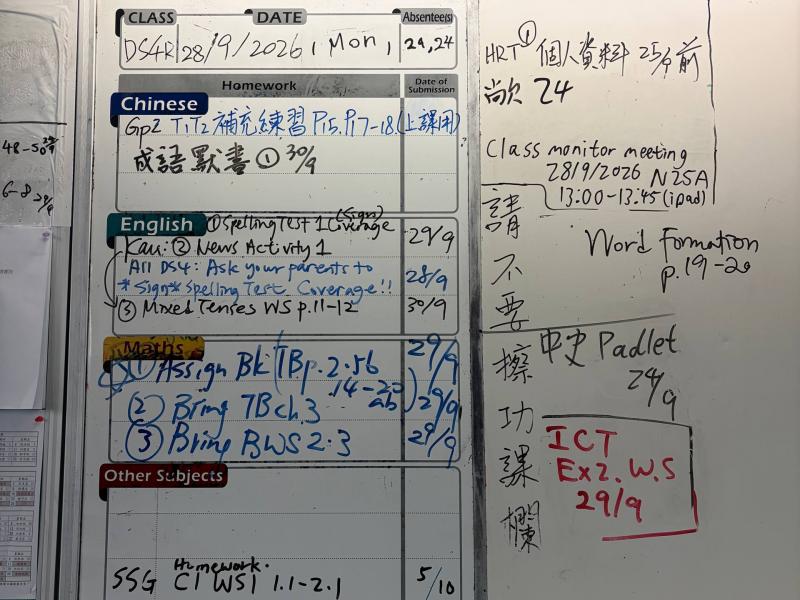 CLASS DATE Absentee(s)
DS4R 28/9/2026 (Mon) 21,24
Homework Date of Submission
Chinese
Gp2 T1T2 補充練習 P.15, P.17-18 (上課用)
成語默書① 30/9
English
① Spelling Test 1 Coverage (Sign) 29/9
Kau: ② News Activity 1
All DS4: Ask your parents to 28/9
*Sign* Spelling Test Coverage!!
③ Mixed Tenses WS p.11-12 30/9
Maths
① Assign Bk (TB p.2.56 29/9
14-20 ab)
② Bring TB ch.3 29/9
③ Bring BWS 2.3 29/9
Other Subjects
SSG Homework. C1 WS1 1.1-2.1 5/10
48-50
6-8 29/9
HRT ① 個人資料 25/9前
尚欠 24
Class monitor meeting
28/9/2026 N25A
13:00-13:45 (ipad)
請不要擦功課欄
Word Formation
p.19-20
中史 Padlet
24/9
ICT
Ex2. W.S
29/9